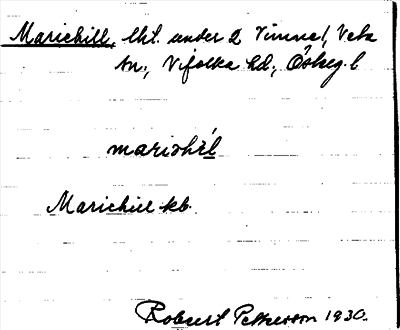 Marichill, lht. under 2 Vinnel, Veta
sn., Vifolka hd., Östeg. l
marichil
Marichill kb.
Robert Petterson 1930.